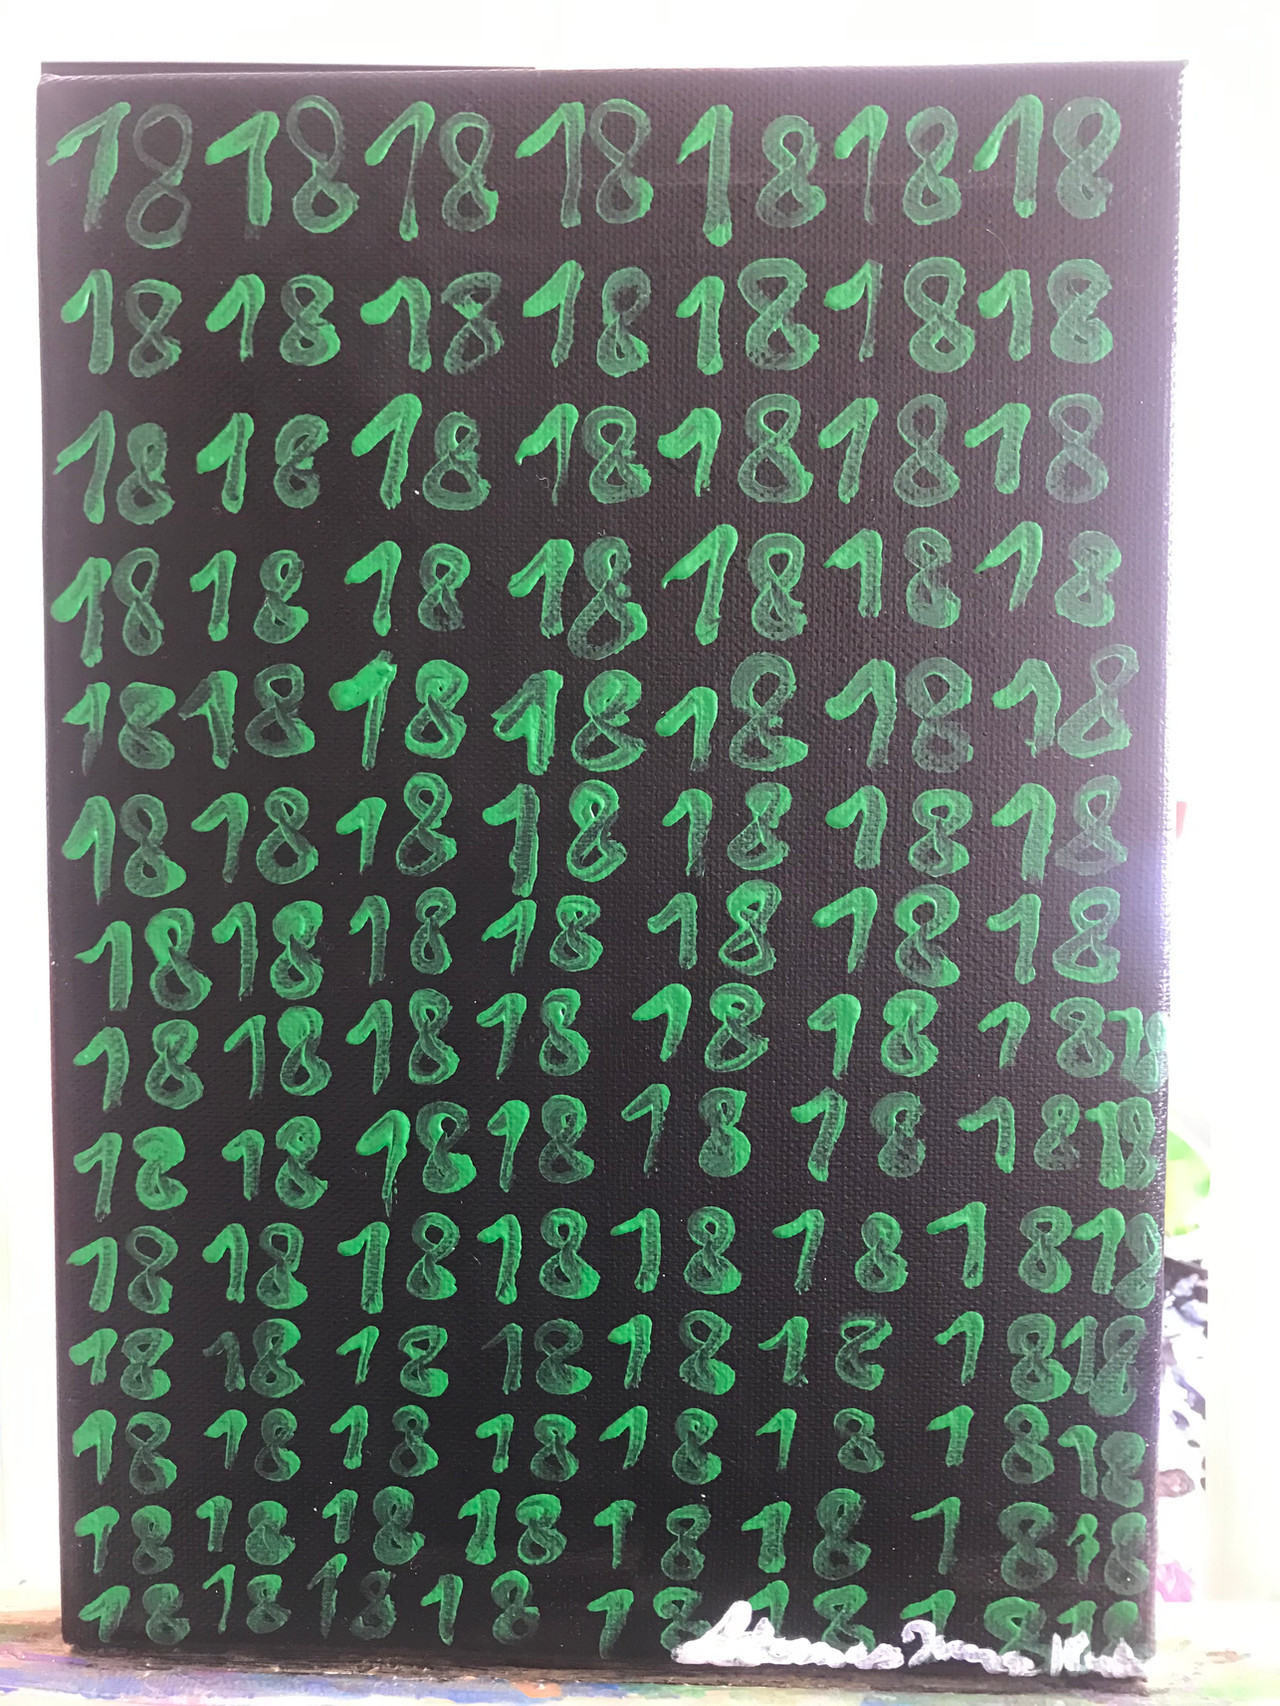 18 18 18 18 18 18 18
18 18 18 18 18 18 18
18 18 18 18 18 18 18
18 18 18 18 18 18 18
18 18 18 18 18 18 18
18 18 18 18 18 18 18
18 18 18 18 18 18 18
18 18 18 18 18 18 18 18
18 18 18 18 18 18 18 18
18 18 18 18 18 18 18 18
18 18 18 18 18 18 18 18
18 18 18 18 18 18 18 18
18 18 18 18 18 18 18 18
18 18 18 18 18 18 18 18